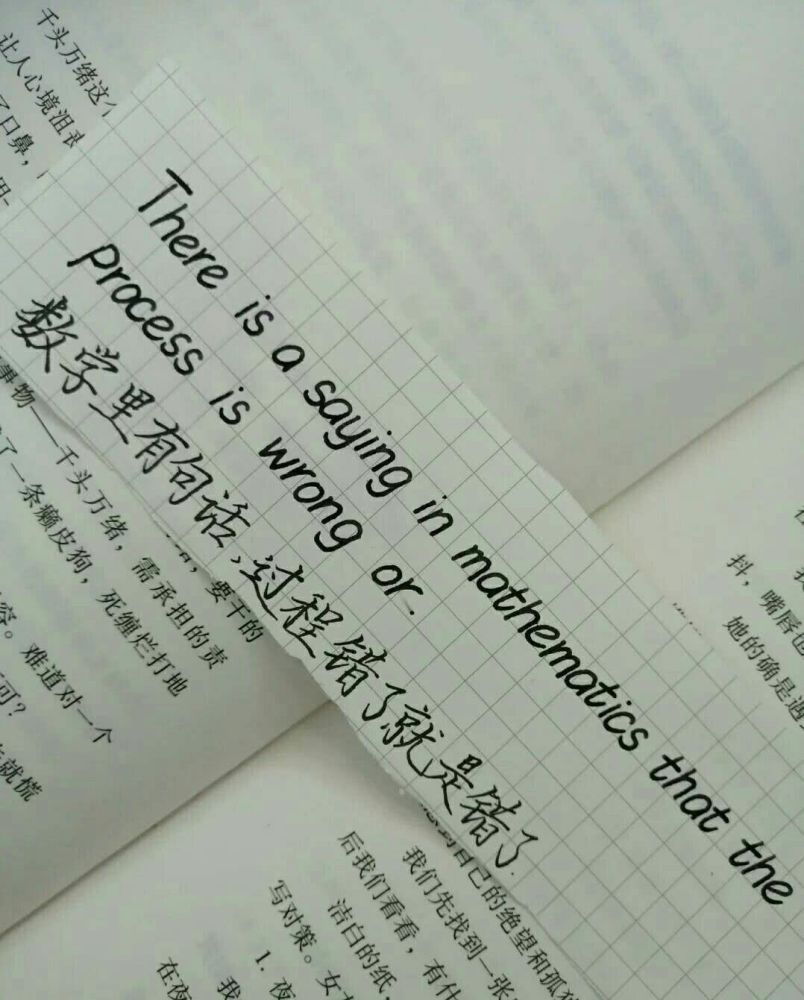 There is a saying in mathematics that the
process is wrong or.
数学里有句话,过程错了就是错了.
千头万绪这
让人心境沮
了口鼻,
事物——千头万绪,需承担的责
了一条癞皮狗,死缠烂打地
要干的
容。难道对一个
可?
就慌
抖,嘴唇也
她的确是遇
到自己的绝望和孤独
我们先找到一张
后我们看看,有什
洁白的纸,
写对策。女
1. 夜
我
在夜